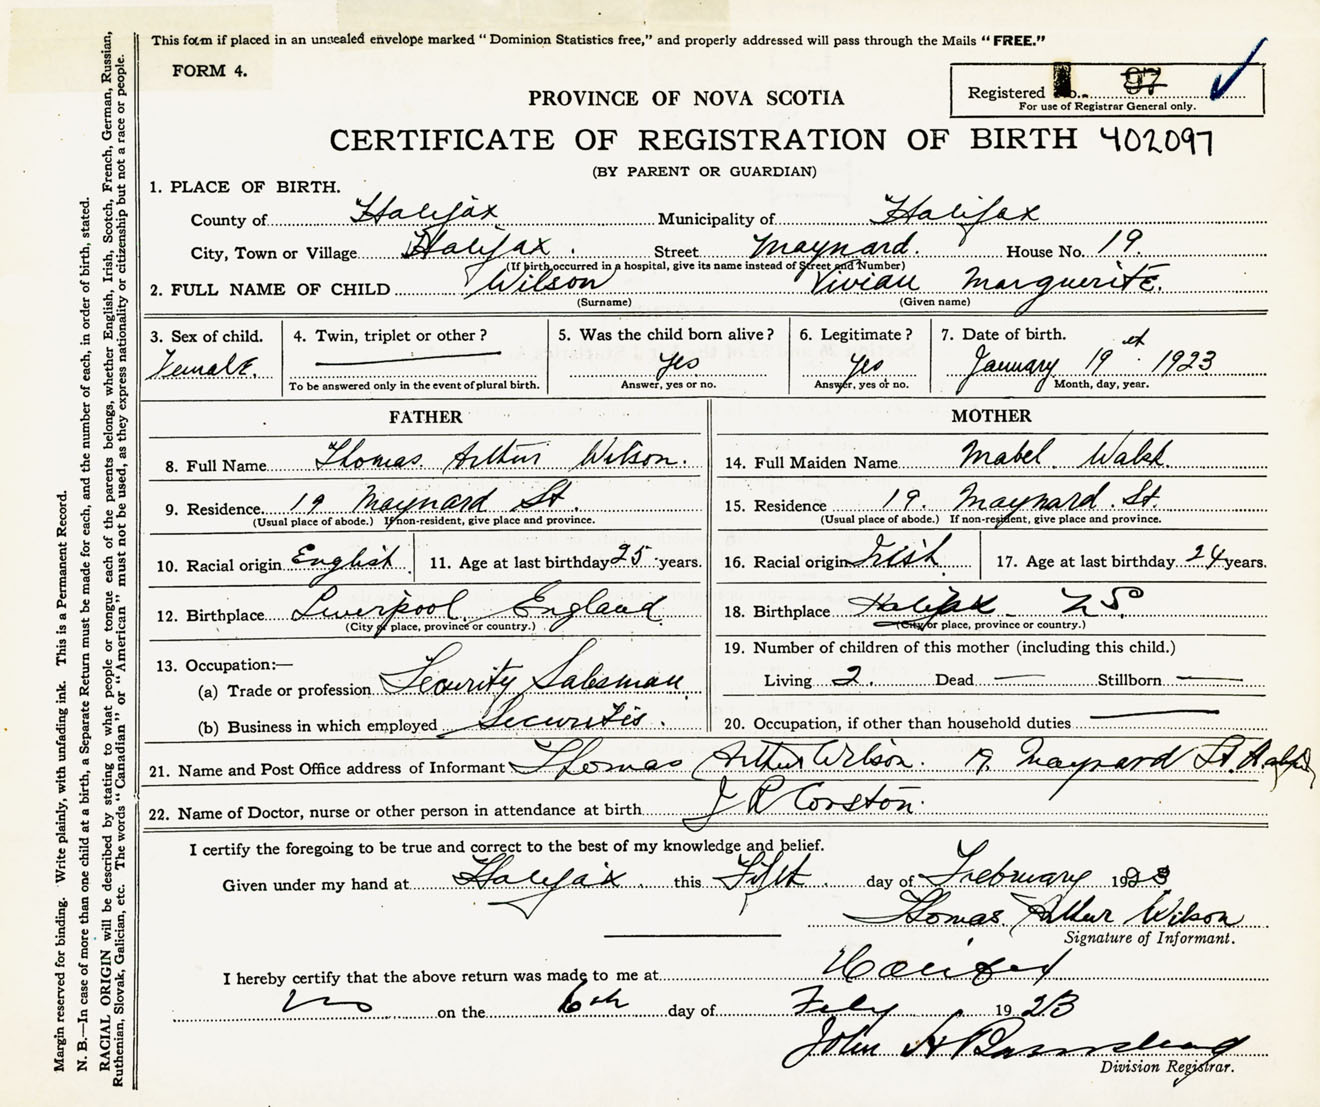 This form if placed in an unsealed envelope marked “Dominion Statistics free,” and properly addressed will pass through the Mails “FREE.”
FORM 4.
Registered No. 97
For use of Registrar General only.
PROVINCE OF NOVA SCOTIA
CERTIFICATE OF REGISTRATION OF BIRTH 402097
(BY PARENT OR GUARDIAN)
1. PLACE OF BIRTH.
County of Halifax Municipality of Halifax
City, Town or Village Halifax. Street Maynard. House No. 19.
(If birth occurred in a hospital, give its name instead of Street and Number)
2. FULL NAME OF CHILD Wilson Vivian Marguerite.
(Surname) (Given name)
3. Sex of child. 4. Twin, triplet or other? 5. Was the child born alive? 6. Legitimate? 7. Date of birth.
Female. Yes Yes January 19th 1923
To be answered only in the event of plural birth. Answer, yes or no. Answer, yes or no. Month, day, year.
FATHER MOTHER
8. Full Name Thomas. Arthur Wilson. 14. Full Maiden Name Mabel. Walsh.
9. Residence. 19 Maynard St. 15. Residence 19. Maynard. St.
(Usual place of abode.) If non-resident, give place and province. (Usual place of abode.) If non-resident, give place and province.
10. Racial origin English. 11. Age at last birthday 25 years. 16. Racial origin Irish 17. Age at last birthday 24 years.
12. Birthplace Liverpool, England. 18. Birthplace Halifax NS
(City or place, province or country.) (City or place, province or country.)
13. Occupation:— 19. Number of children of this mother (including this child.)
(a) Trade or profession Security Salesman. Living 2. Dead — Stillborn —
(b) Business in which employed Securities. 20. Occupation, if other than household duties
21. Name and Post Office address of Informant Thomas Arthur Wilson. 19. Maynard St. Halifax
22. Name of Doctor, nurse or other person in attendance at birth J R Corston.
I certify the foregoing to be true and correct to the best of my knowledge and belief.
Given under my hand at Halifax this Fifth day of February 1923
Thomas. Arthur Wilson
Signature of Informant.
I hereby certify that the above return was made to me at Halifax
NS on the 6th day of Feby 1923
John H
Division Registrar.
Margin reserved for binding. Write plainly, with unfading ink. This is a Permanent Record.
N. B.—In case of more than one child at a birth, a Separate Return must be made for each, and the number of each, in order of birth, stated.
RACIAL ORIGIN will be described by stating to what people or tongue each of the parents belongs, whether English, Irish, Scotch, French, German, Russian,
Ruthenian, Slovak, Galician, etc. The words “Canadian” or “American” must not be used, as they express nationality or citizenship but not a race or people.